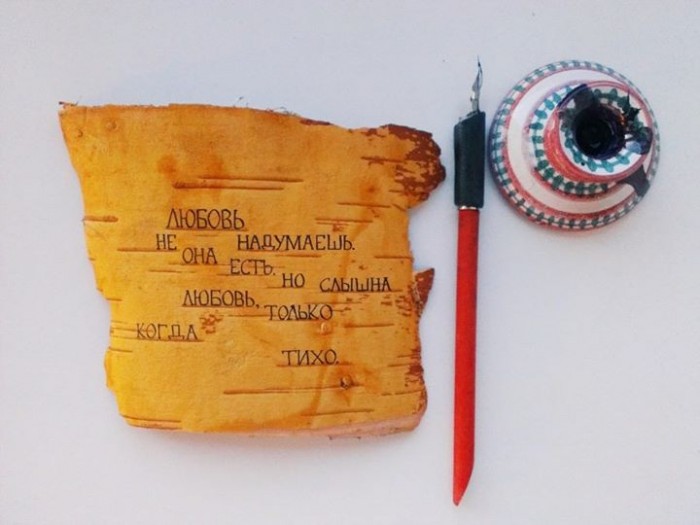 ЛЮБОВЬ
НЕ НАДУМАЕШЬ.
ОНА ЕСТЬ.
НО СЛЫШНА
ЛЮБОВЬ, ТОЛЬКО
КОГДА
ТИХО.